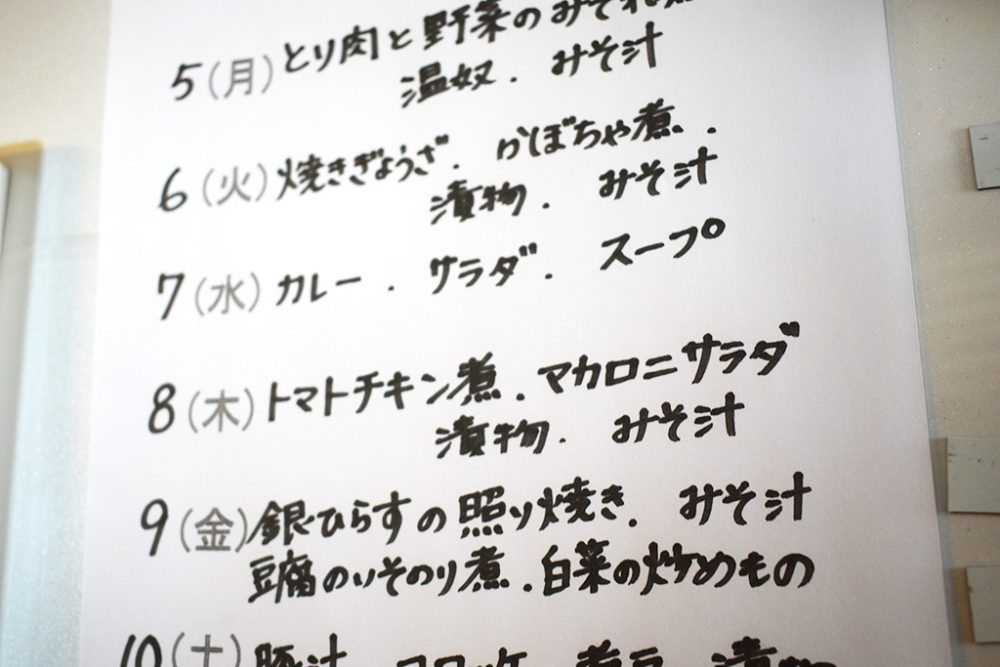 5(月)とり肉と野菜のみぞれ煮
温奴. みそ汁
6(火)焼きぎょうざ. かぼちゃ煮.
漬物. みそ汁
7(水)カレー. サラダ. スープ
8(木)トマトチキン煮. マカロニサラダ
漬物. みそ汁
9(金)銀ひらすの照り焼き. みそ汁
豆腐のいそのり煮. 白菜の炒めもの
10(土)豚汁. コロッケ. 煮豆. 漬物